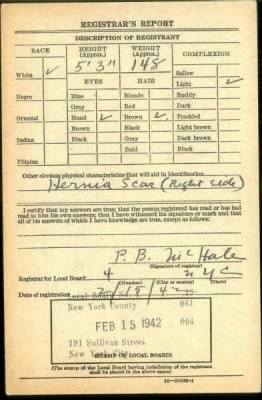 REGISTRAR'S REPORT
DESCRIPTION OF REGISTRANT
RACE HEIGHT (Approx.) WEIGHT (Approx.) COMPLEXION
5' 3" 148
White ✓ EYES HAIR Sallow
Light ✓
Negro Blue Blonde Ruddy
Gray Red Dark
Oriental Hazel ✓ Brown ✓ Freckled
Brown Black Light brown
Indian Black Gray Dark brown
Bald Black
Filipino
Other obvious physical characteristics that will aid in identification
Hernia Scar (Right side)
I certify that my answers are true; that the person registered has read or has had
read to him his own answers; that I have witnessed his signature or mark and that
all of his answers of which I have knowledge are true, except as follows:
P. B. McHale
(Signature of registrar)
Registrar for Local Board 4 N Y C
(Number) (City or county) (State)
Date of registration 2/15/42
Local Board No.
New York County 061
FEB 15 1942 004
191 Sullivan Street
New York
(STAMP OF LOCAL BOARD)
(The stamp of the Local Board having jurisdiction of the registrant
shall be placed in the above space.)